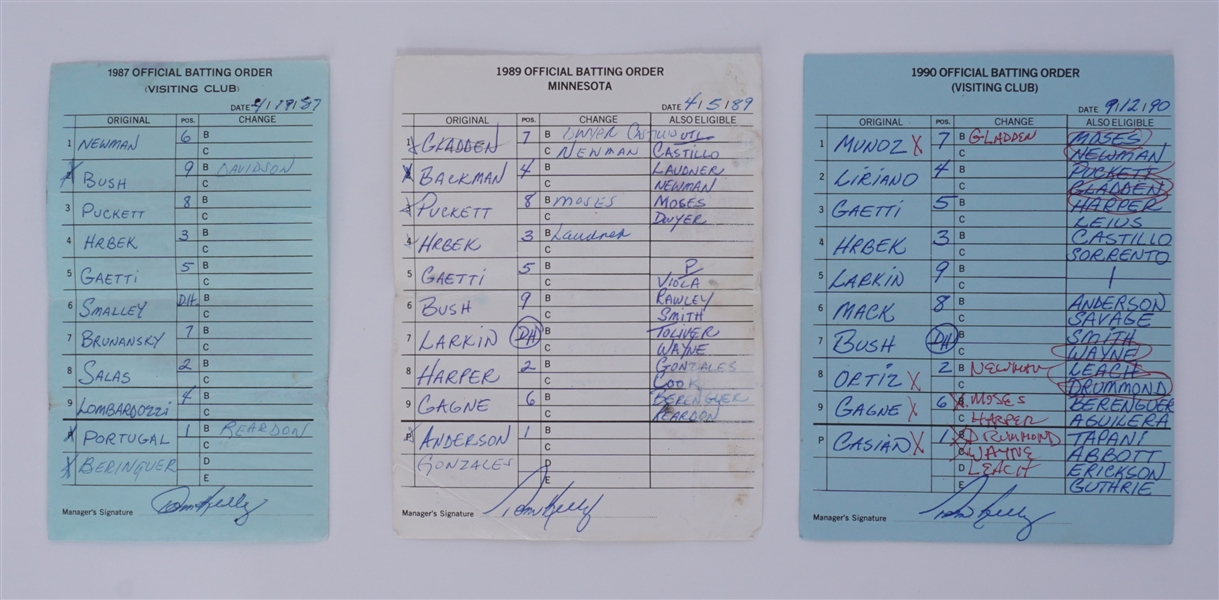 1987 OFFICIAL BATTING ORDER
(VISITING CLUB)
DATE
ORIGINAL POS. CHANGE
1 NEWMAN 6 B
C
BUSH 9 B DAVIDSON
C
3 PUCKETT 8 B
C
4 HRBEK 3 B
C
5 GAETTI 5 B
C
6 SMALLEY D.H. B
C
7 BRUNANSKY 7 B
C
8 SALAS 2 B
C
9 LOMBARDOZZI 4 B
C
PORTUGAL 1 B REARDON
C
BERINGUER D
E
Manager's Signature Tom Kelly
1989 OFFICIAL BATTING ORDER
MINNESOTA
DATE 4/5/89
ORIGINAL POS. CHANGE ALSO ELIGIBLE
1 GLADDEN 7 B DWYER CASTILLO UTL
C NEWMAN CASTILLO
BACKMAN 4 B LAUDNER
C NEWMAN
PUCKETT 8 B MOSES MOSES
C DWYER
HRBEK 3 B Laudner
C
5 GAETTI 5 B P
C VIOLA
6 BUSH 9 B RAWLEY
C SMITH
7 LARKIN DH B TOLIVER
C WAYNE
8 HARPER 2 B GONZALES
C COOK
9 GAGNE 6 B BERENGUER
C REARDON
P ANDERSON 1 B
C
GONZALES D
E
Manager's Signature Tom Kelly
1990 OFFICIAL BATTING ORDER
(VISITING CLUB)
DATE 9/2/90
ORIGINAL POS. CHANGE ALSO ELIGIBLE
1 MUNOZ X 7 B GLADDEN MOSES
C NEWMAN
2 LIRIANO 4 B PUCKETT
C GLADDEN
3 GAETTI 5 B HARPER
C LEIUS
4 HRBEK 3 B CASTILLO
C SORRENTO
5 LARKIN 9 B
C
6 MACK 8 B ANDERSON
C SAVAGE
7 BUSH DH B SMITH
C WAYNE
8 ORTIZ X 2 B NEWMAN LEACH
C DRUMMOND
9 GAGNE X 6 B MOSES BERENGUER
C HARPER AGUILERA
P CASIAN X 1 B DRUMMOND TAPANI
C WAYNE ABBOTT
D LEACH ERICKSON
E GUTHRIE
Manager's Signature Tom Kelly